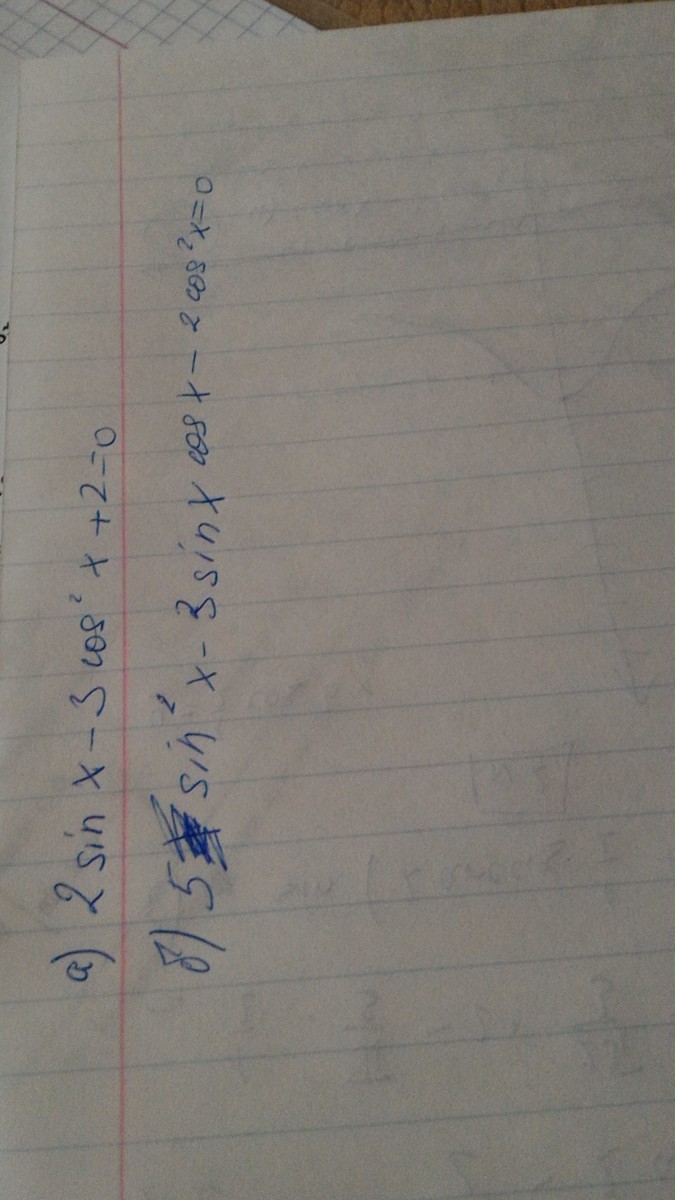 а) 2 sin x - 3 cos² x + 2 = 0
б) 5 sin² x - 3 sin x cos x - 2 cos² x = 0